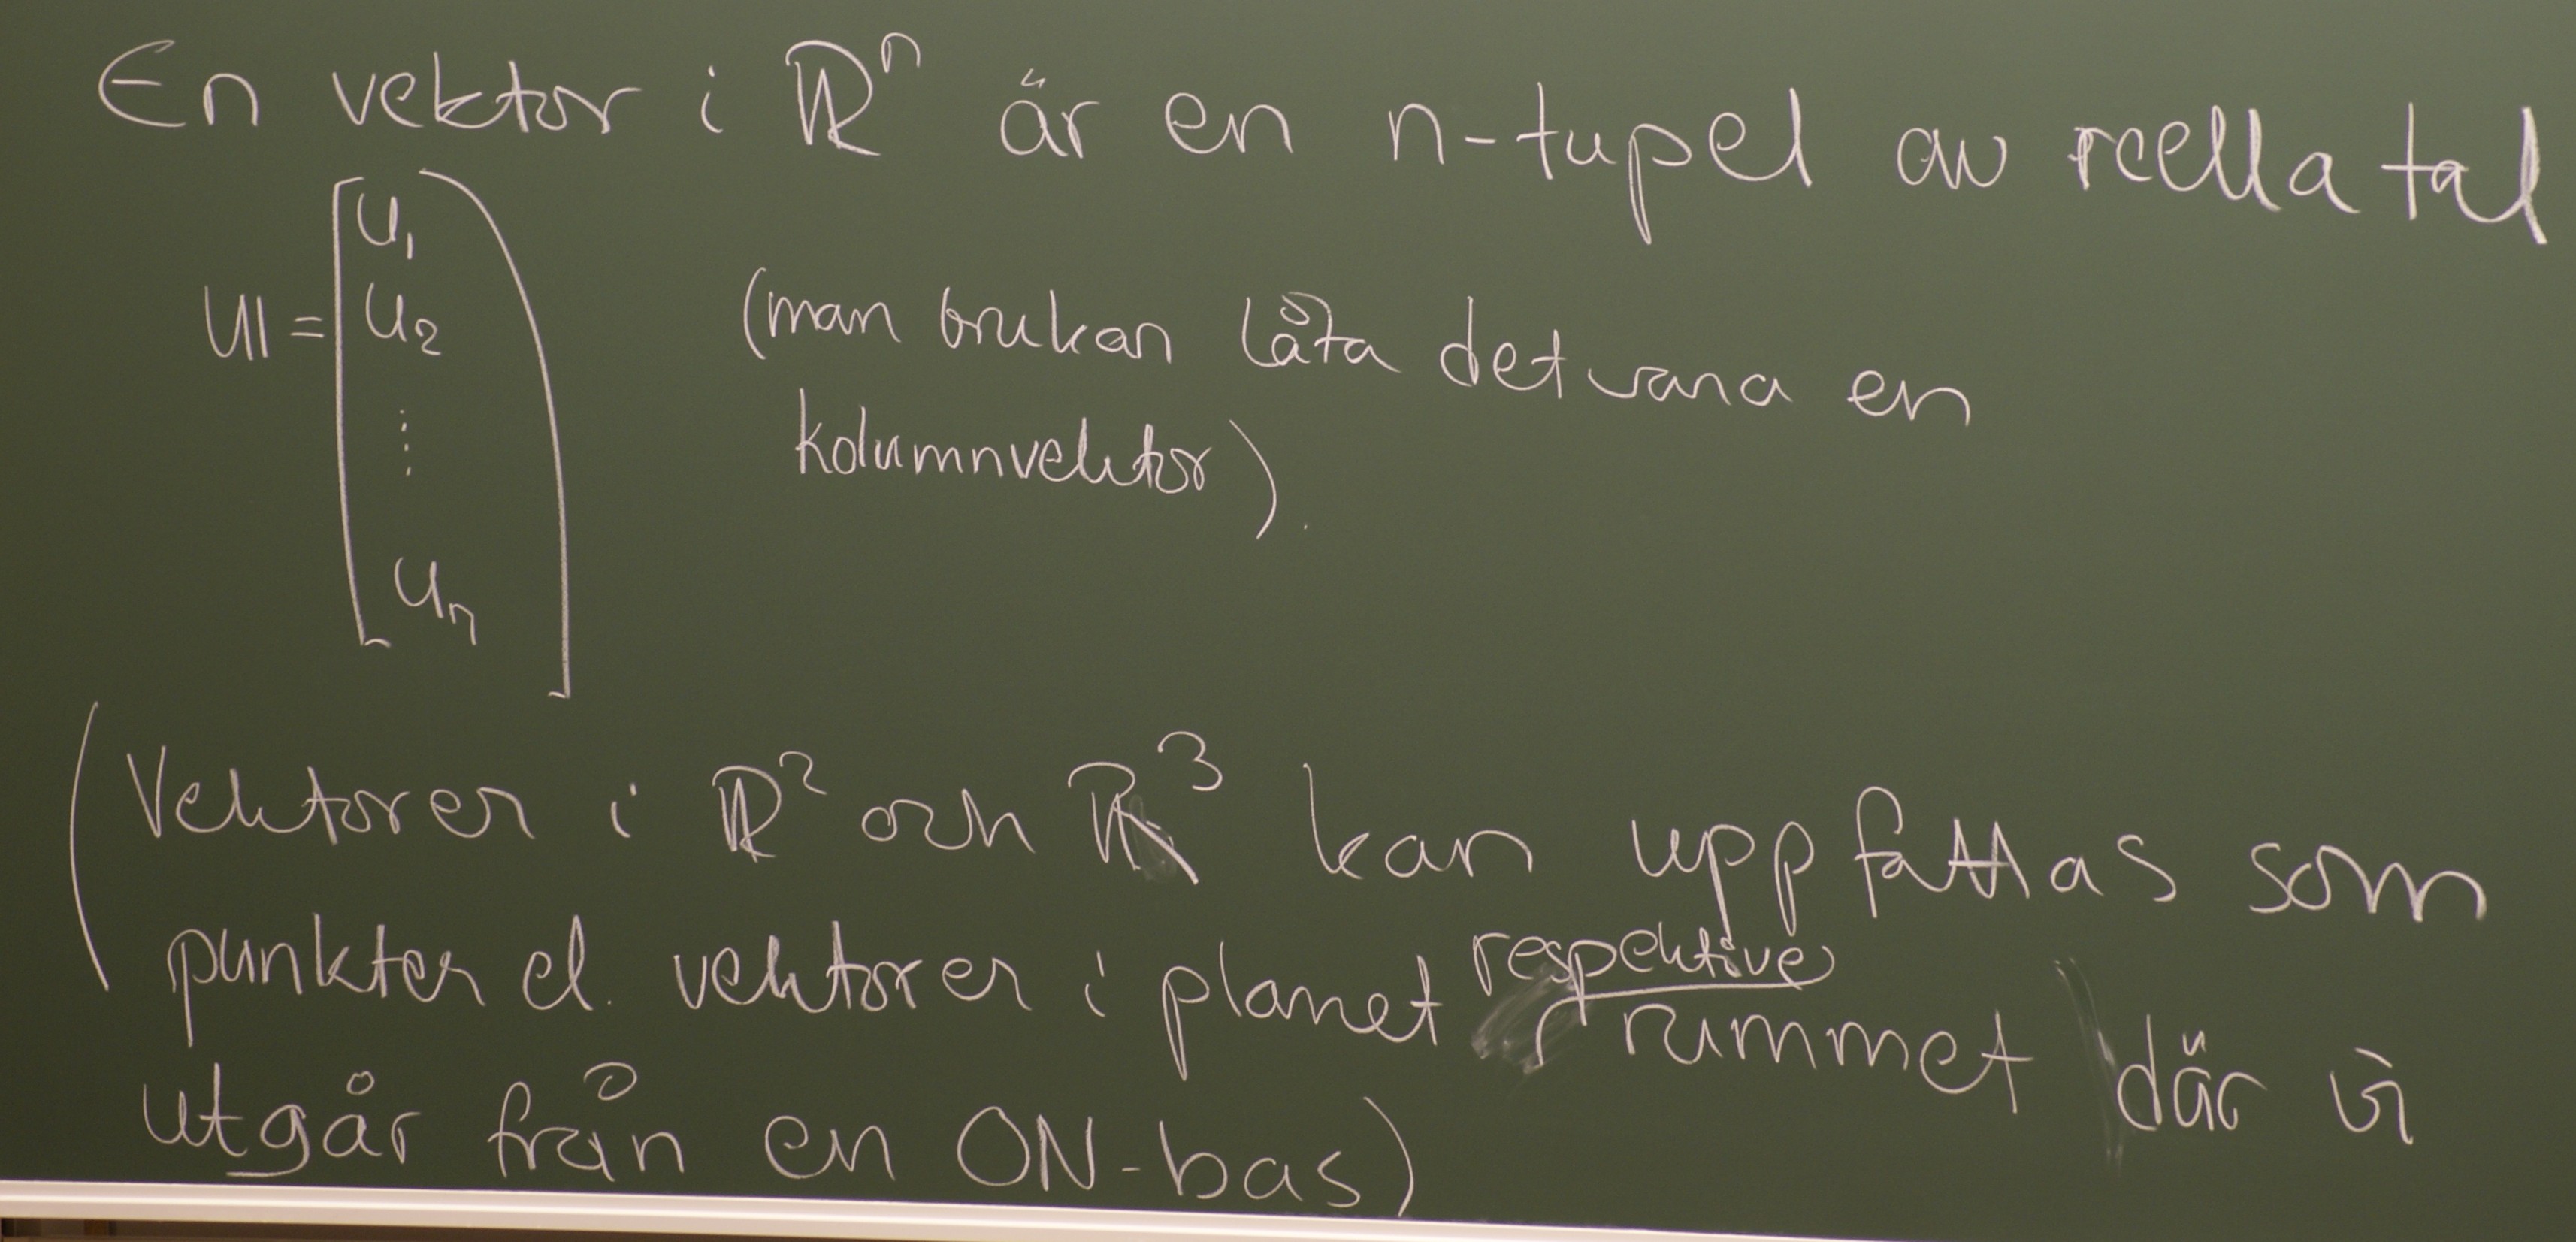 En vektor i ℝⁿ är en n-tupel av reella tal
𝕦 = [u₁
u₂
⋮
uₙ]
(man brukar låta det vara en
kolumnvektor).
(Vektorer i ℝ² och ℝ³ kan uppfattas som
punkter el. vektorer i planet respektive rummet där vi
utgår från en ON-bas)